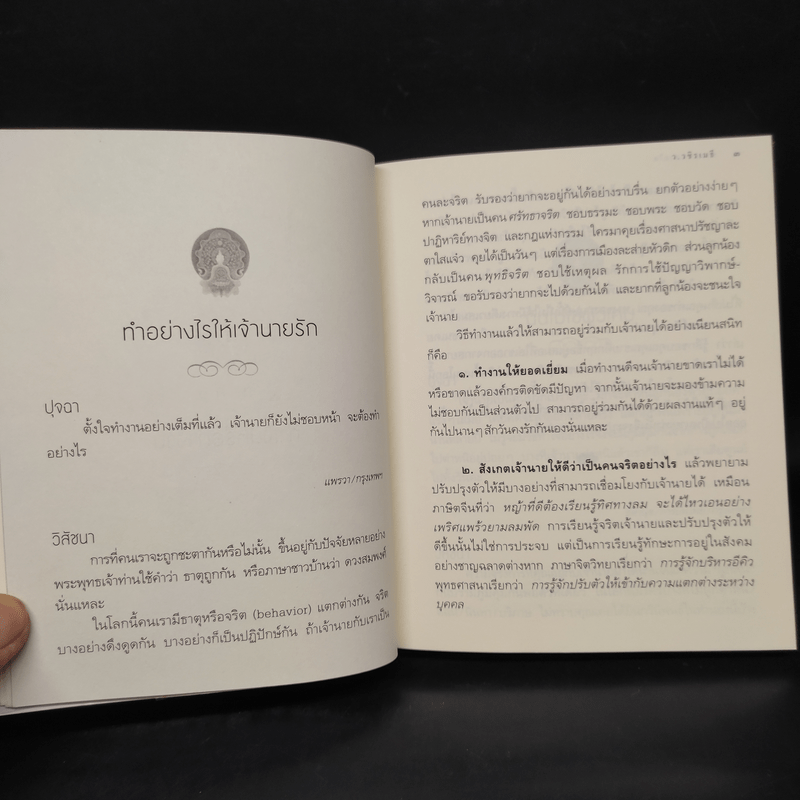 ทำอย่างไรให้เจ้านายรัก
ปุจฉา
ตั้งใจทำงานอย่างเต็มที่แล้ว เจ้านายก็ยังไม่ชอบหน้า จะต้องทำ
อย่างไร
แพรวา/กรุงเทพฯ
วิสัชนา
การที่คนเราจะถูกชะตากันหรือไม่นั้น ขึ้นอยู่กับปัจจัยหลายอย่าง
พระพุทธเจ้าท่านใช้คำว่า ธาตุถูกกัน หรือภาษาชาวบ้านว่า ดวงสมพงศ์
นั่นแหละ
ในโลกนี้คนเรามีธาตุหรือจริต (behavior) แตกต่างกัน จริต
บางอย่างดึงดูดกัน บางอย่างก็เป็นปฏิปักษ์กัน ถ้าเจ้านายกับเราเป็น
ว.วชิรเมธี ๓
คนละจริต รับรองว่ายากจะอยู่กันได้อย่างราบรื่น ยกตัวอย่างง่ายๆ
หากเจ้านายเป็นคนศรัทธาจริต ชอบธรรมะ ชอบพระ ชอบวัด ชอบ
ปาฏิหาริย์ทางจิต และกฎแห่งกรรม ใครมาคุยเรื่องศาสนาปรัชญาละ
ตาใสแจ๋ว คุยได้เป็นวันๆ แต่เรื่องการเมืองละส่ายหัวดิก ส่วนลูกน้อง
กลับเป็นคนพุทธิจริต ชอบใช้เหตุผล รักการใช้ปัญญาวิพากษ์-
วิจารณ์ ขอรับรองว่ายากจะไปด้วยกันได้ และยากที่ลูกน้องจะชนะใจ
เจ้านาย
วิธีทำงานแล้วให้สามารถอยู่ร่วมกับเจ้านายได้อย่างเนียนสนิท
ก็คือ
๑. ทำงานให้ยอดเยี่ยม เมื่อทำงานดีจนเจ้านายขาดเราไม่ได้
หรือขาดแล้วองค์กรติดขัดมีปัญหา จากนั้นเจ้านายจะมองข้ามความ
ไม่ชอบกันเป็นส่วนตัวไป สามารถอยู่ร่วมกันได้ด้วยผลงานแท้ๆ อยู่
กันไปนานๆ สักวันคงรักกันเองนั่นแหละ
๒. สังเกตเจ้านายให้ดีว่าเป็นคนจริตอย่างไร แล้วพยายาม
ปรับปรุงตัวให้มีบางอย่างที่สามารถเชื่อมโยงกับเจ้านายได้ เหมือน
ภาษิตจีนที่ว่า หญ้าที่ดีต้องเรียนรู้ทิศทางลม จะได้ไหวเอนอย่าง
เพริศแพร้วยามลมพัด การเรียนรู้จริตเจ้านายและปรับปรุงตัวให้
ดีขึ้นนั้นไม่ใช่การประจบ แต่เป็นการเรียนรู้ทักษะการอยู่ในสังคม
อย่างชาญฉลาดต่างหาก ภาษาจิตวิทยาเรียกว่า การรู้จักบริหารอีคิว
พุทธศาสนาเรียกว่า การรู้จักปรับตัวให้เข้ากับความแตกต่างระหว่าง
บุคคล